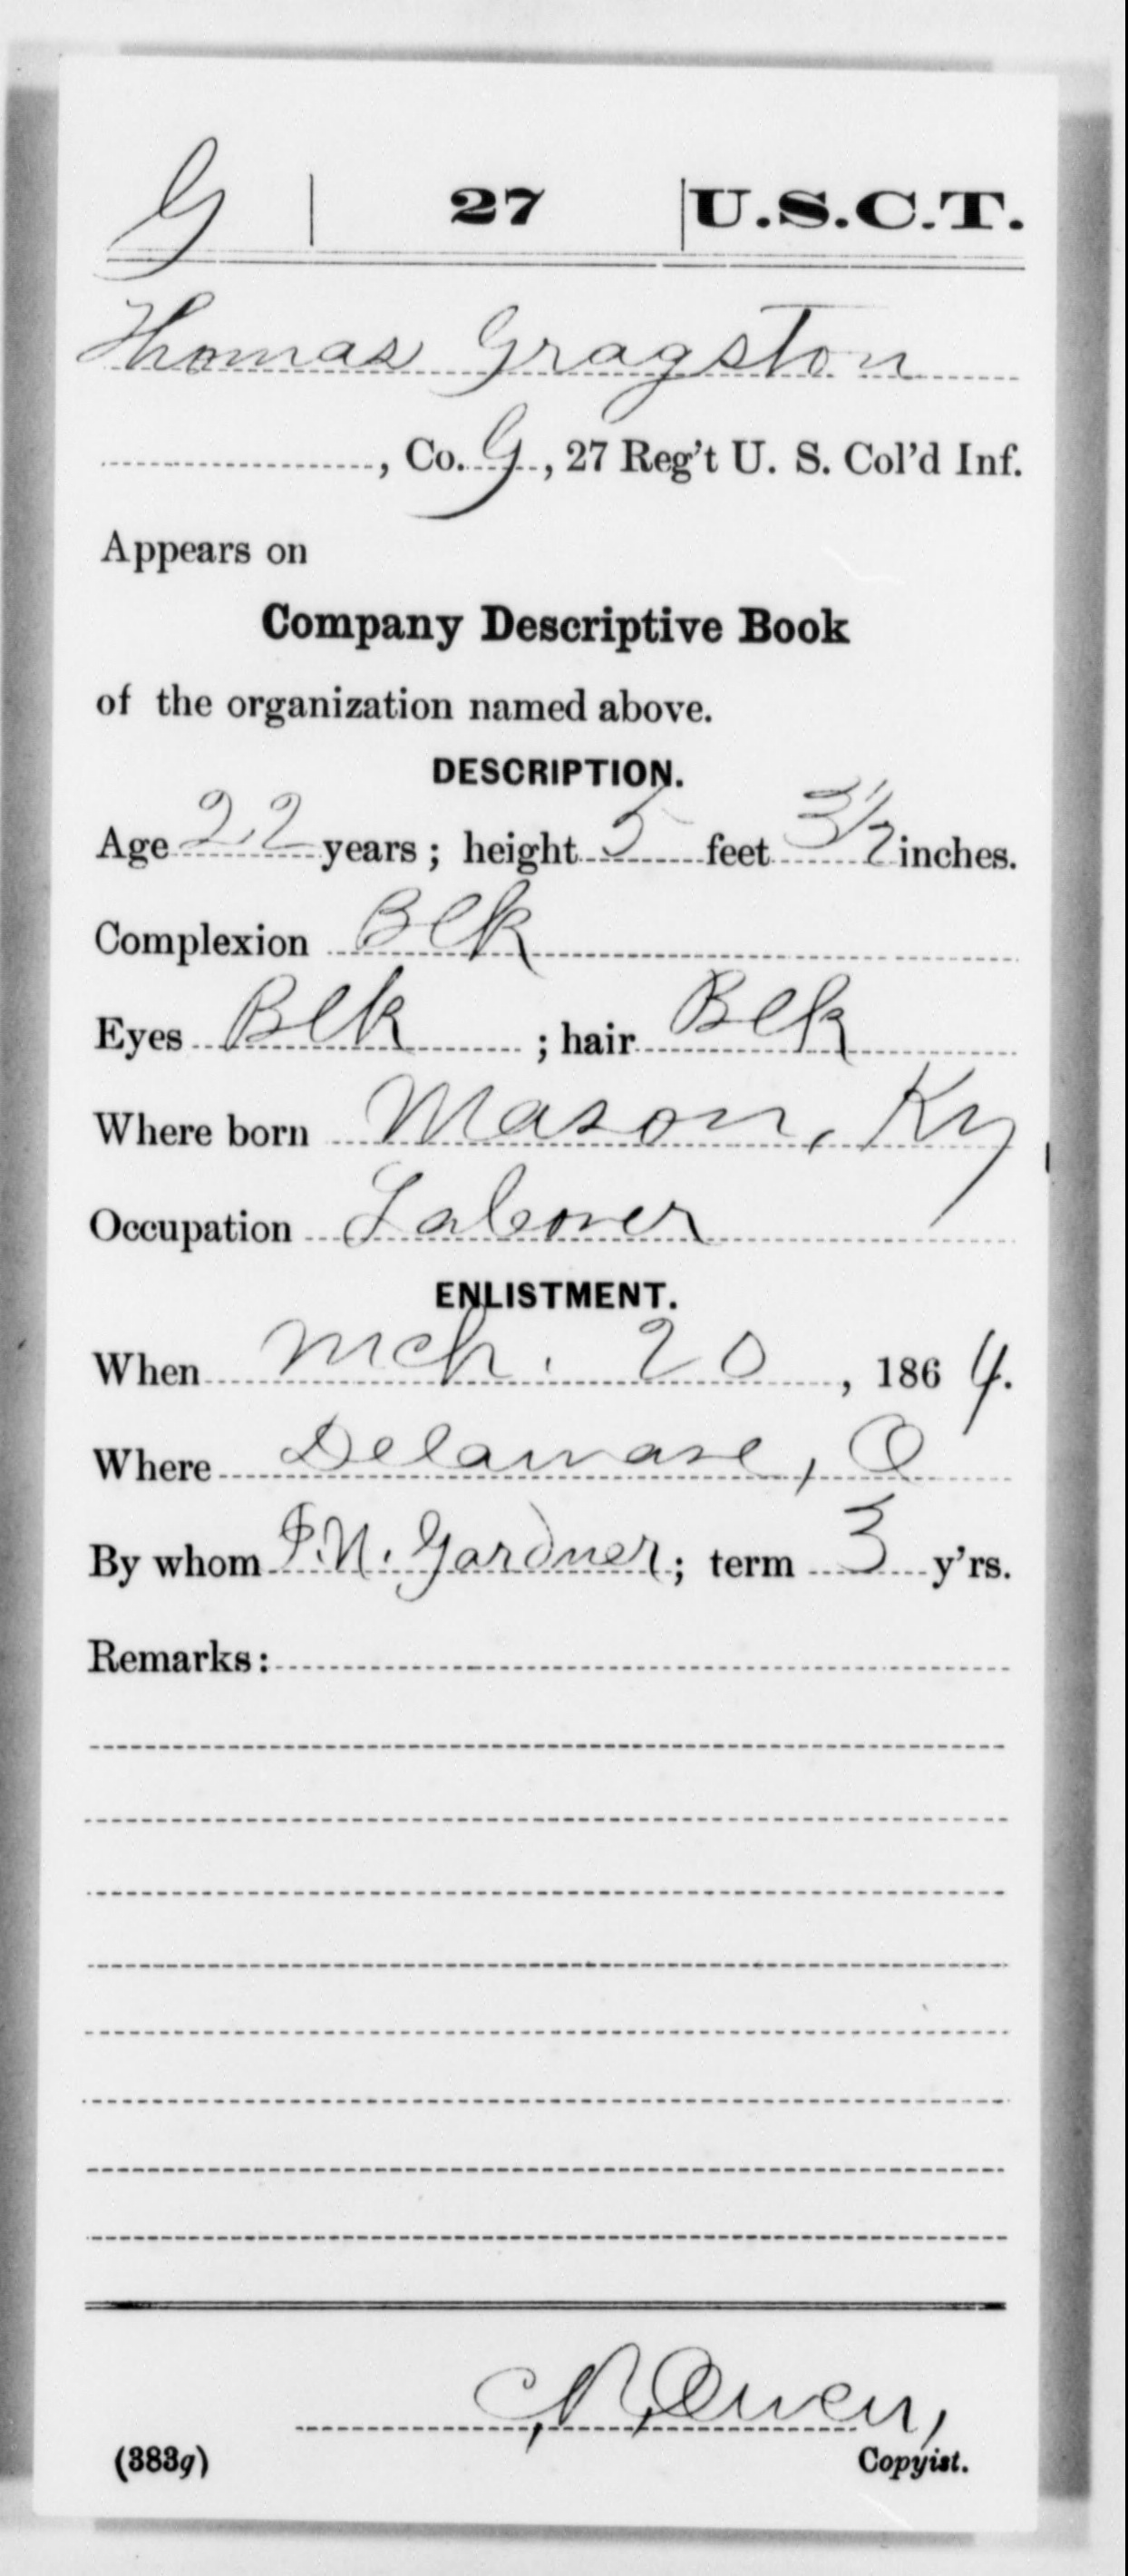 G | 27 | U.S.C.T.
Thomas Gragston
, Co. G, 27 Reg't U. S. Col'd Inf.
Appears on
Company Descriptive Book
of the organization named above.
DESCRIPTION.
Age 22 years; height 5 feet 3 1/2 inches.
Complexion Blk
Eyes Blk; hair Blk
Where born Mason, Ky
Occupation Laborer
ENLISTMENT.
When Mch. 20, 1864.
Where Delaware, O
By whom P.N. Gardner; term 3 y'rs.
Remarks:
Owen,
(383g) Copyist.